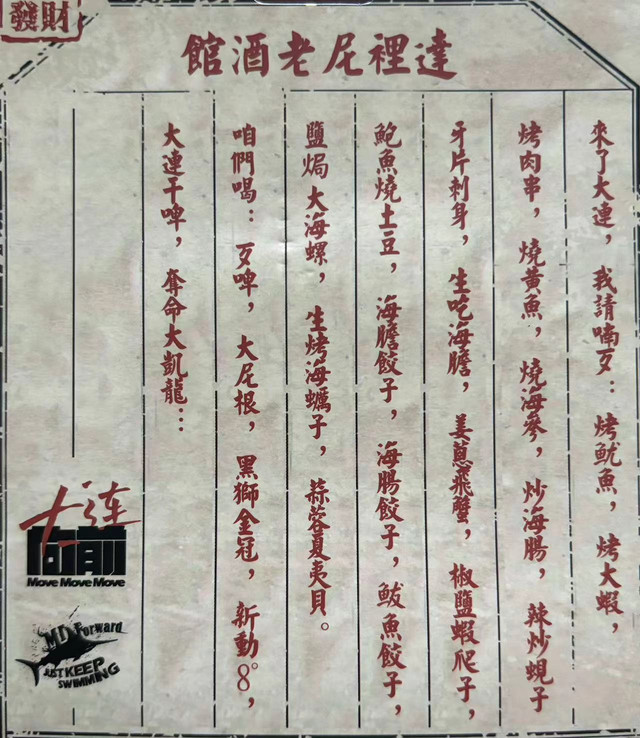 發財
達裡尼老酒館
來了大連，我請喃歹：烤魷魚，烤大蝦，
烤肉串，燒黃魚，燒海參，炒海腸，辣炒蜆子
牙片刺身，生吃海膽，姜蔥飛蟹，椒鹽蝦爬子，
鮑魚燒土豆，海膽餃子，海腸餃子，鮁魚餃子，
鹽焗大海螺，生烤海蠣子，蒜蓉夏夷貝。
咱們喝：歹啤，大尼根，黑獅金冠，新動8°，
大連干啤，奪命大凱龍…
大连
向前
Move Move Move
MD Forward
JUST KEEP
SWIMMING